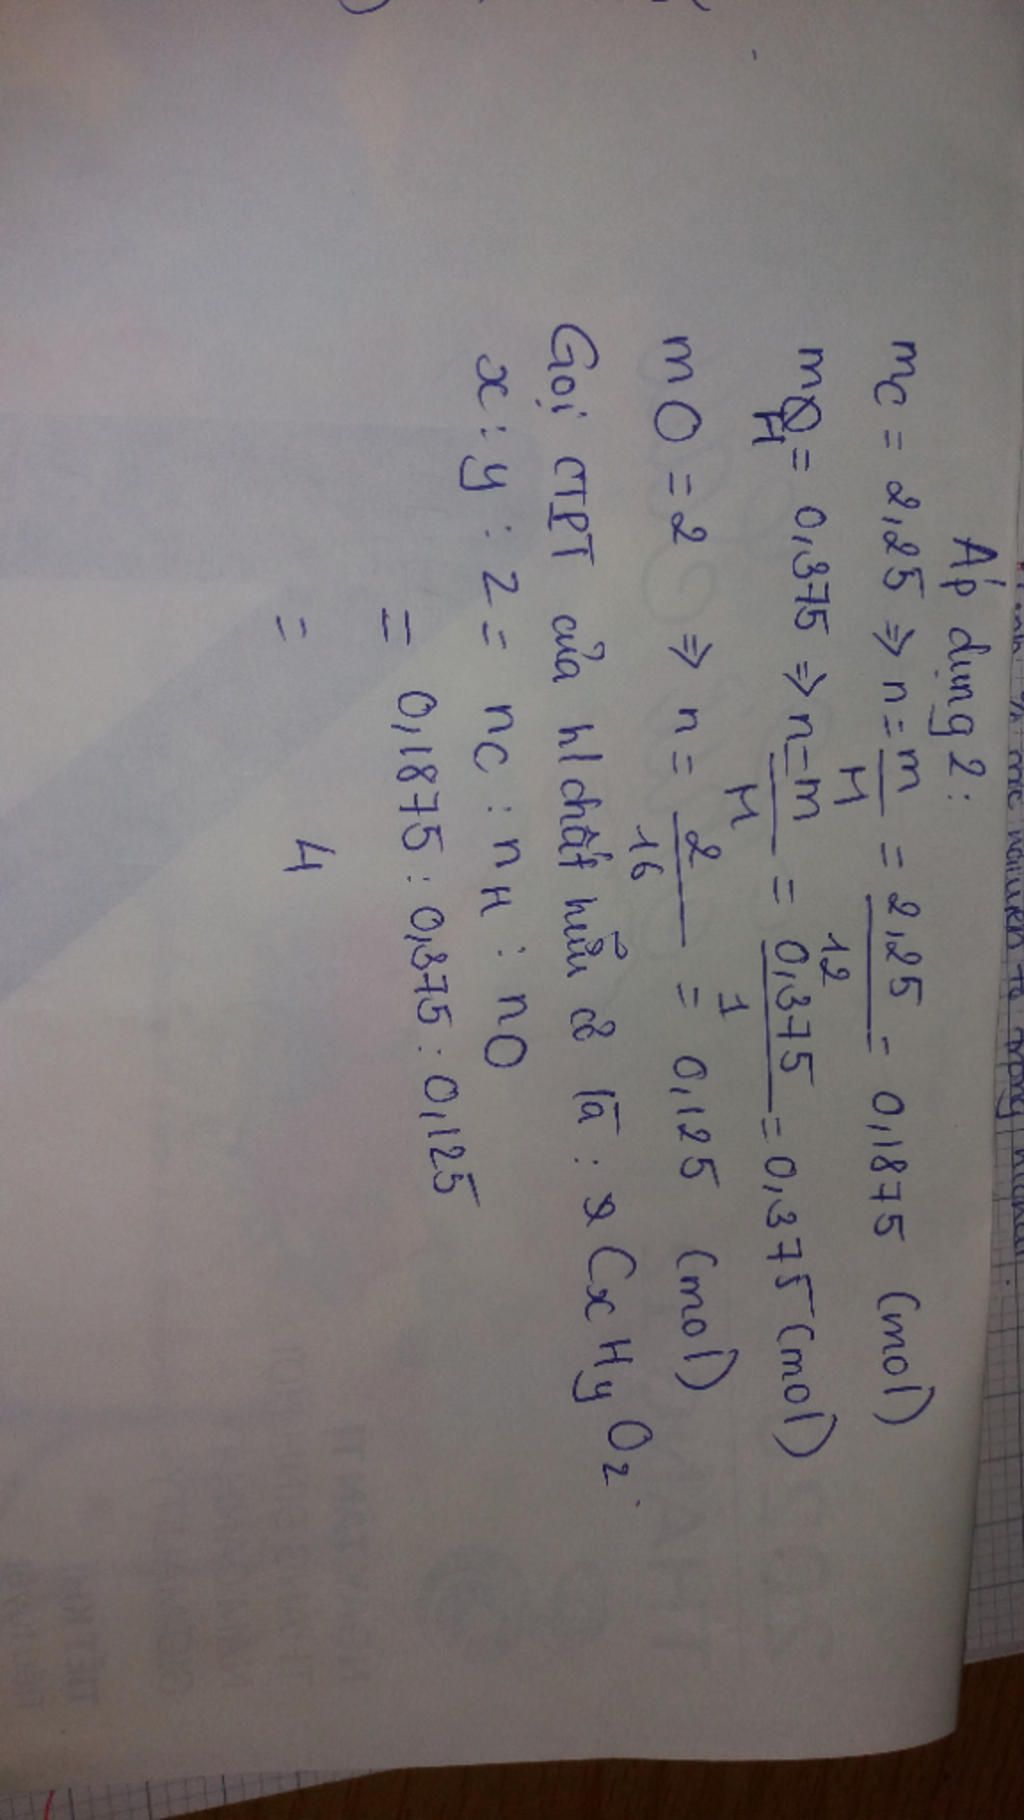 Áp dụng 2:
mC = 2,25 ⇒ n = m/M = 2,25/12 = 0,1875 (mol)
mH = 0,375 ⇒ n = m/M = 0,375/1 = 0,375 (mol)
mO = 2 ⇒ n = 2/16 = 0,125 (mol)
Gọi CTPT của h/chất hữu cơ là : CxHyOz.
x : y : z = nC : nH : nO
= 0,1875 : 0,375 : 0,125
= 4